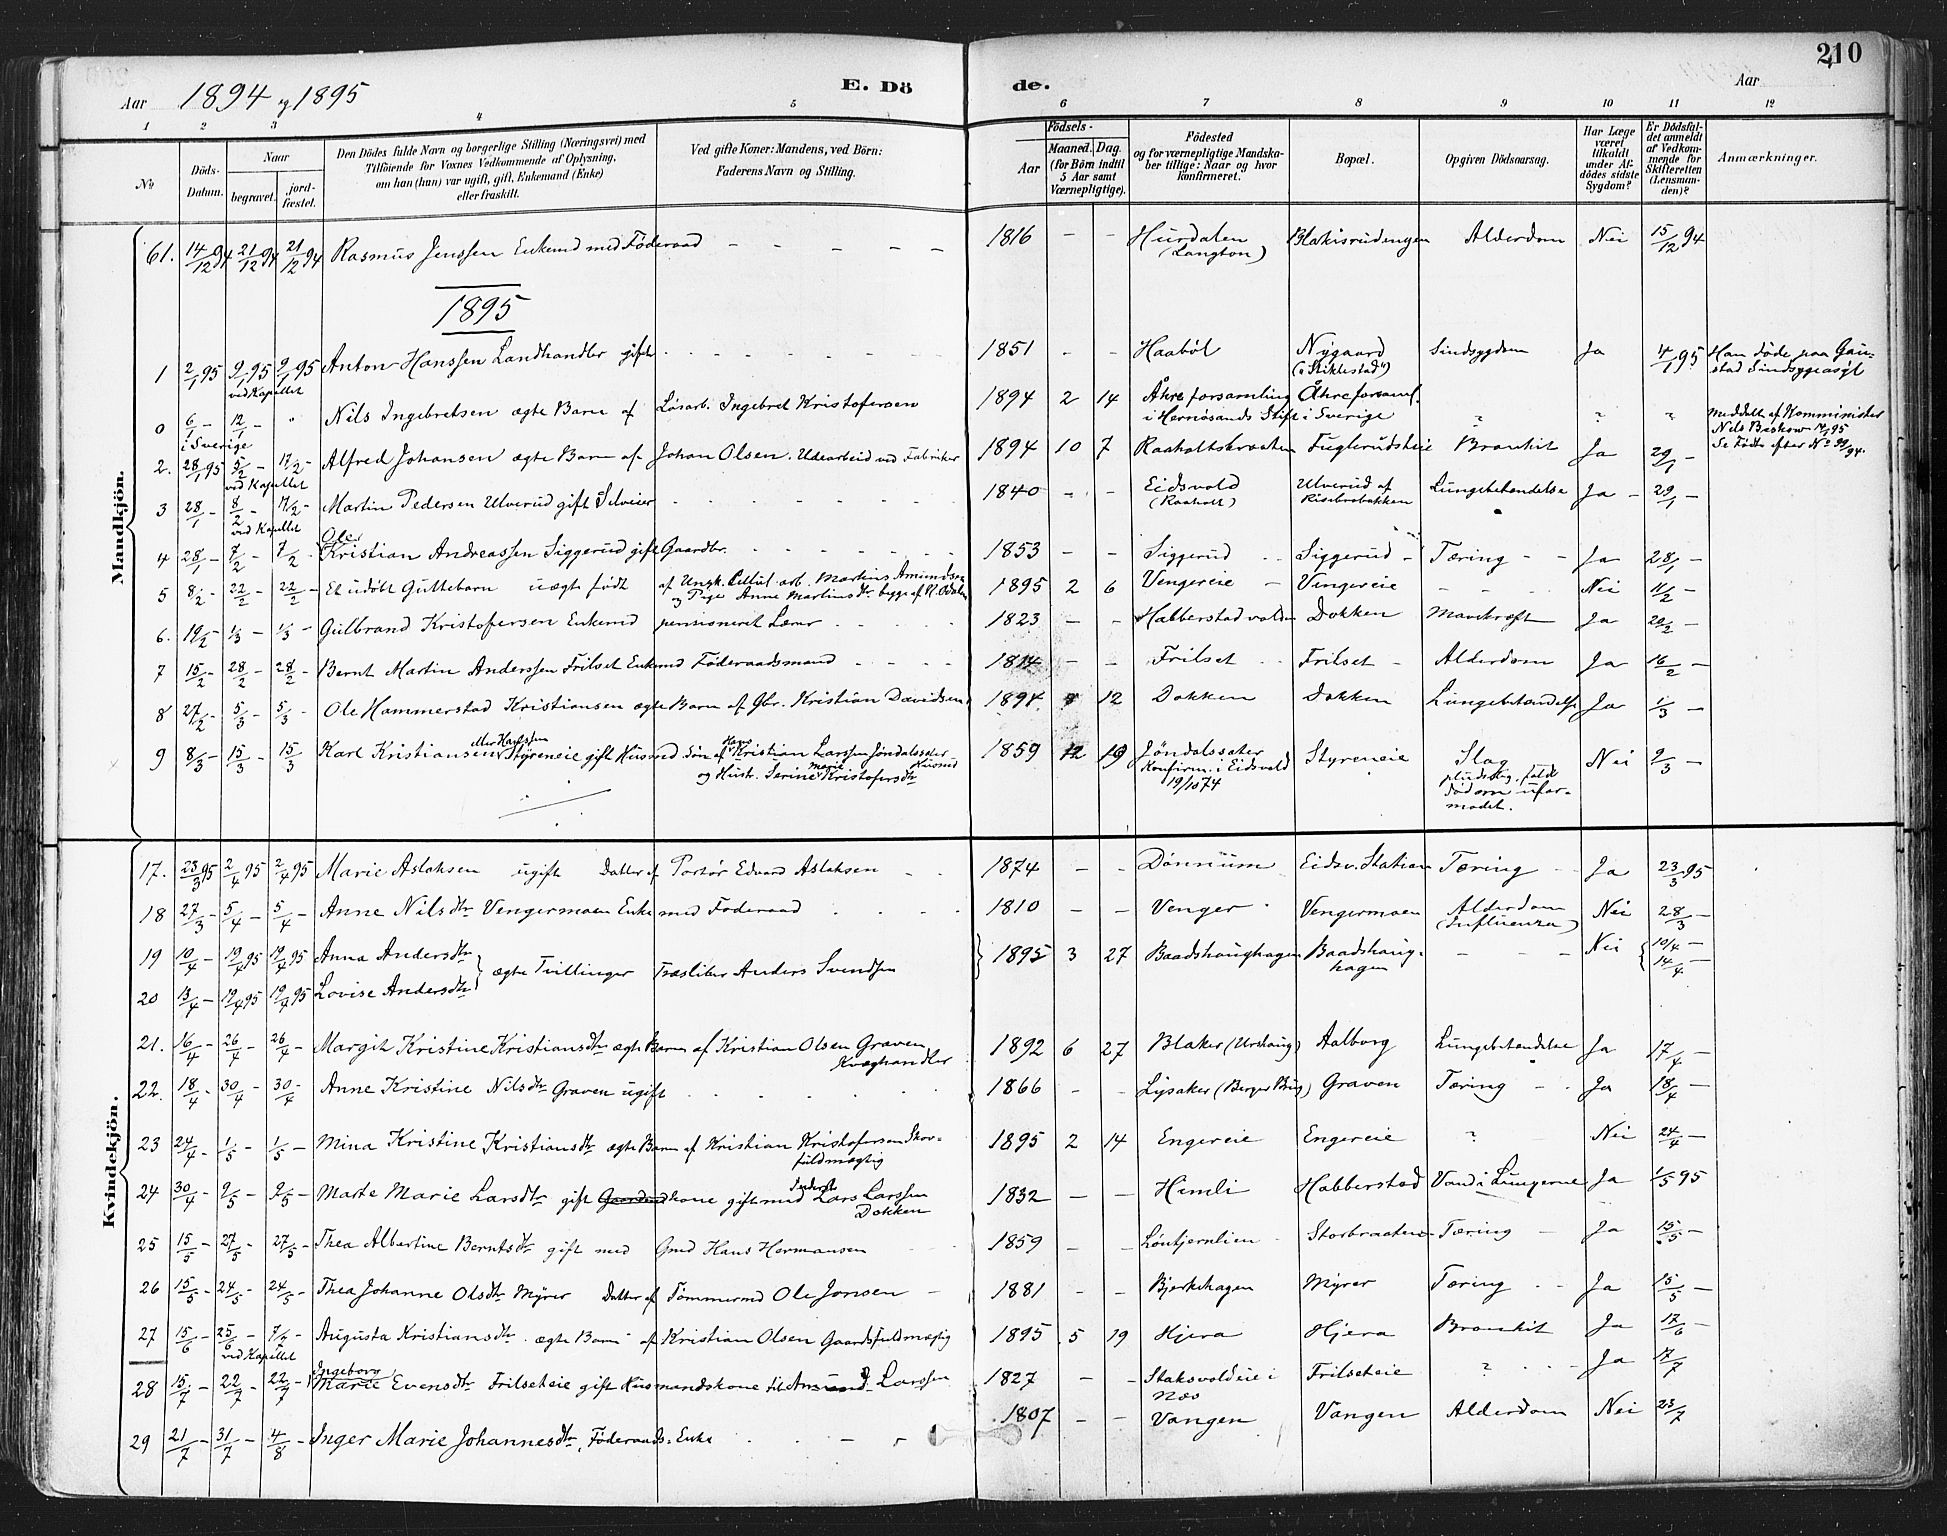 210
Aar 1894 og 1895
E. Dö de.
Aar
1 2 3 4 5 6 7 8 9 10 11 12
No
Döds-Datum.
Naar
begravet.
jord-fæstet.
Den Dödes fulde Navn og borgerlige Stilling (Næringsvei) med
Tilföiende for Voxnes Vedkommende af Oplysning,
om han (hun) var ugift, gift, Enkemand (Enke)
eller fraskilt.
Ved gifte Koner: Mandens, ved Börn:
Faderens Navn og Stilling.
Födsels-
Aar
Maaned. Dag.
(for Börn indtil
5 Aar samt
Værnepligtige).
Födested
og for værnepligtige Mandska-
ber tillige: Naar og hvor
konfirmeret.
Bopæl.
Opgiven Dödsaarsag.
Har Læge
været
tilkaldt
under Af-
dödes sidste
Sygdom?
Er Dödsfal-
det anmeldt
af Vedkom-
mende for
Skifteretten
(Lensman-
den)?
Anmærkninger.
Mandkjön.
61. 14/12 94 21/12 94 21/12 94 Rasmus Jenssen Enkemd med Föderaad – – – – – 1816 – – Hurdalen (Langton) Blakisrudengen Alderdom Nei 15/12 94
1895
1 2/1 95 9/1 95 9/1 95 Anton Hanssen Landhandler gift 1851 – – Haaböl Nygaard ("Stiklestad") Sindsygdom Ja 4/1 95 Han döde paa Gau-
stad Sindsygeasyl
ved Kapellet
0 6/1 – 12/1 – " Nils Ingebretsen ægte Barn af Lösarb. Ingebret Kristofersen 1894 2 14 Åhre forsamling Åhre forsaml.
i Hernösands Stift i Sverige ? ? ? Meddelt af Komminister
i Sverige
Se Födte efter No 99/94.
2. 28/1 95 5/2 – 17/2 – Alfred Johansen ægte Barn af Johan Olsen. Udearbeid ved Fabriker 1894 10 7 Raaholtsbraaten Fuglerudsteie Bronkit Ja 29/1 –
ved Kapellet
3 28/1 – 8/2 – 17/2 – Martin Pedersen Ulverud gift Selveier 1840 – – Eidsvold (Raaholt) Ulverud af Risebrobakken Lungebetændelse Ja – 29/1 –
ved Kapellet
Ole
4 28/1 – 7/2 – 7/2 – Kristian Andreassen Siggerud gift Gaardbr. 1853 – – Siggerud Siggerud – Tæring – – Ja 28/1 –
5 8/2 – 22/2 – 22/2 – Et udöbt Guttebarn uægte födt af Ungk. Cellul. arb. Martins Amundsen
og Pige Anne Martinsdtr begge af N. Odalen 1895 2 6 Vengereie – Vengereie – – Nei 11/2 –
6. 19/2 – 1/3 – 1/3 – Gulbrand Kristofersen Enkemd pensioneret Lærer 1823 – – Habberstadvolden Dokken Mavekræft Ja 20/2 –
7 15/2 – 28/2 – 28/2 – Bernt Martin Anderssen Frilset Enkemd Föderaadsmand 1814 – – Frilset Frilset – Alderdom Ja 16/2 –
8 27/2 – 5/3 – 5/3 – Ole Hammerstad Kristiansen ægte Barn af Gbr. Kristian Davidsen 1894 12 Dokken Dokken Lungebetændelse Ja 1/3 –
9 8/3 – 15/3 – 15/3 Karl Kristiansen eller Hanssen Styreneie gift Husmd Sön af Hans Kristian Larssen Jöndalssæter Husmd
og Hustr. Serine Marie Kristofersdtr 1859 12 19 Jöndalssæter
Konfirm. i Eidsvold
19/10 74 Styreneie Slag
pludselig, faldt
död om ufor-
modet. Nei 9/3 –
Kvindekjön.
17. 23/3 95 2/4 95 2/4 95 Marie Aslaksen ugift Datter af Portör Edvard Aslaksen 1874 – – Dönnum Eidsv. Station Tæring Ja 23/3 95
18 27/3 – 5/4 – 5/4 – Anne Nilsdtr Vengermoen Enke med Föderaad 1810 – – Venger Vengermoen Alderdom (Influenza) Nei 28/3 –
19 10/4 – 19/4 95 19/4 95 Anna Andersdtr
} ægte Tvillinger Træsliber Anders Svendsen } 1895 3 27 Baadshaughagen Baadshaug-
hagen – – – Nei { 10/4 –
14/4 –
20 13/4 – 19/4 95 19/4 95 Lovise Andersdtr
21. 16/4 – 26/4 – 26/4 – Margit Kristine Kristiansdtr ægte Barn af Kristian Olsen Graven
Kvæghandler 1892 6 27 Blaker (Urshaug) Aalborg Lungebetændelse Ja 17/4 –
22. 18/4 – 30/4 – 30/4 – Anne Kristine Nilsdtr Graven ugift 1866 – – Lysaker (Berger Brug) Graven Tæring – Ja 18/4 –
23 24/4 – 1/5 – 1/5 – Mina Kristine Kristiansdtr ægte Barn af Kristian Kristofersen Skov-
fuldmægtig 1895 2 14 Engereie Engereie ? Nei 24/4 –
24 30/4 – 9/5 – 9/5 – Marte Marie Larsdtr gift Gaardmdkone gift med Inderst Lars Larssen
Dokken 1832 – – Himli Habberstad Vand i Lungerne Ja 1/5 95
25 15/5 – 27/5 – 27/5 – Thea Albertine Berntsdtr gift med Gmd Hans Hermansen 1859 – – Löntjernlien Storbraaten Tæring – Ja 15/5 –
26 15/5 – 24/5 – 24/5 – Thea Johanne Olsdtr Myrer Datter af Tömmermd Ole Jonsen – 1881 – – Bjerkehagen Myrer Tæring Ja 15/5 –
27 15/6 – 25/6 – 7/7 – Augusta Kristiansdtr. ægte Barn af Kristian Olsen Gaardsfuldmægtig 1895. 5 19 Hjera Hjera Bronkit Ja 17/6 –
ved Kapellet
Ingeborg
28 15/7 – 22/7 – 22/7 – Marie Evensdtr Frilseteie gift Husmandskone til Amund Larssen 1827 – – Staksvoldeie i
Næs Frilseteie ? Ja 17/7
29 21/7 – 31/7 – 4/8 Inger Marie Johannesdtr, Föderaads-Enke – – 1807 – – Vangen Vangen Alderdom Nei 23/7